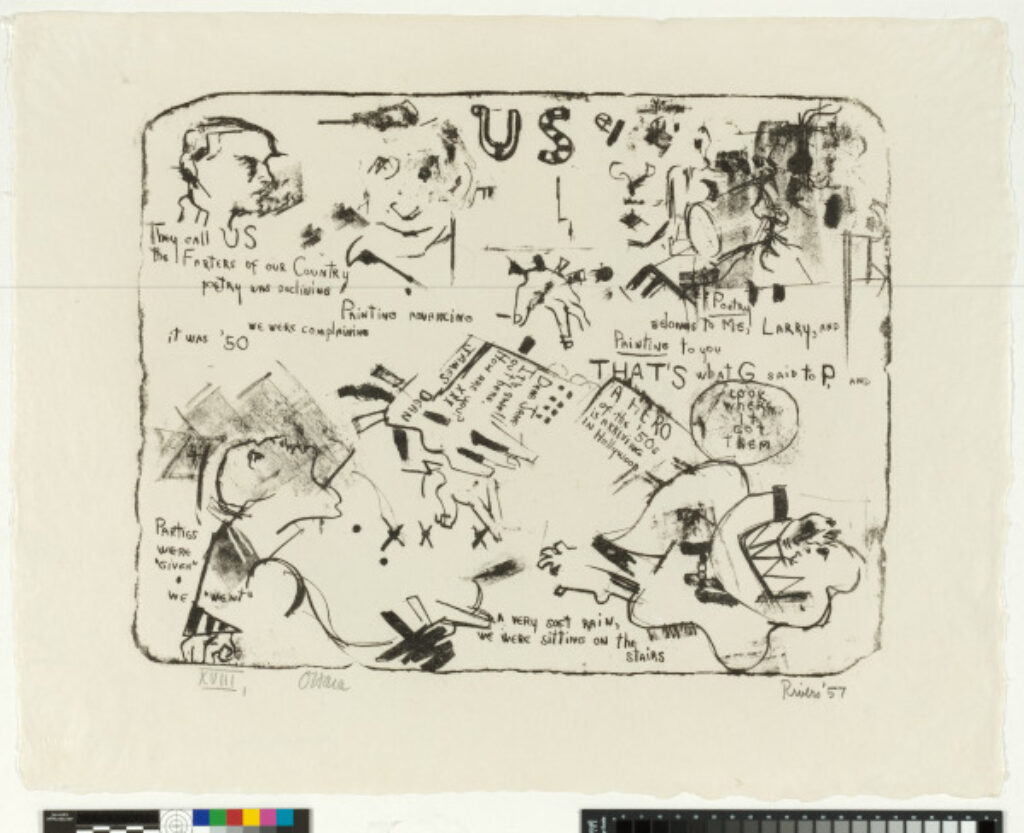 US
They call US
the FARTERS of our Country
poetry was declining
Painting advancing
we were complaining
it was '50
Poetry
belongs to Me, Larry, and
Painting to you
THAT'S what G said to P and
LOOK
WHERE
IT
GOT
THEM
JAMES
DEAN
A HERO
of the '50s
is arriving
in Hollywood
PARTIES
WERE
"GIVEN"
WE "WENT"
A VERY SOFT RAIN,
WE WERE SITTING ON the
STAIRS
XVIII
O'Hara
Rivers '57